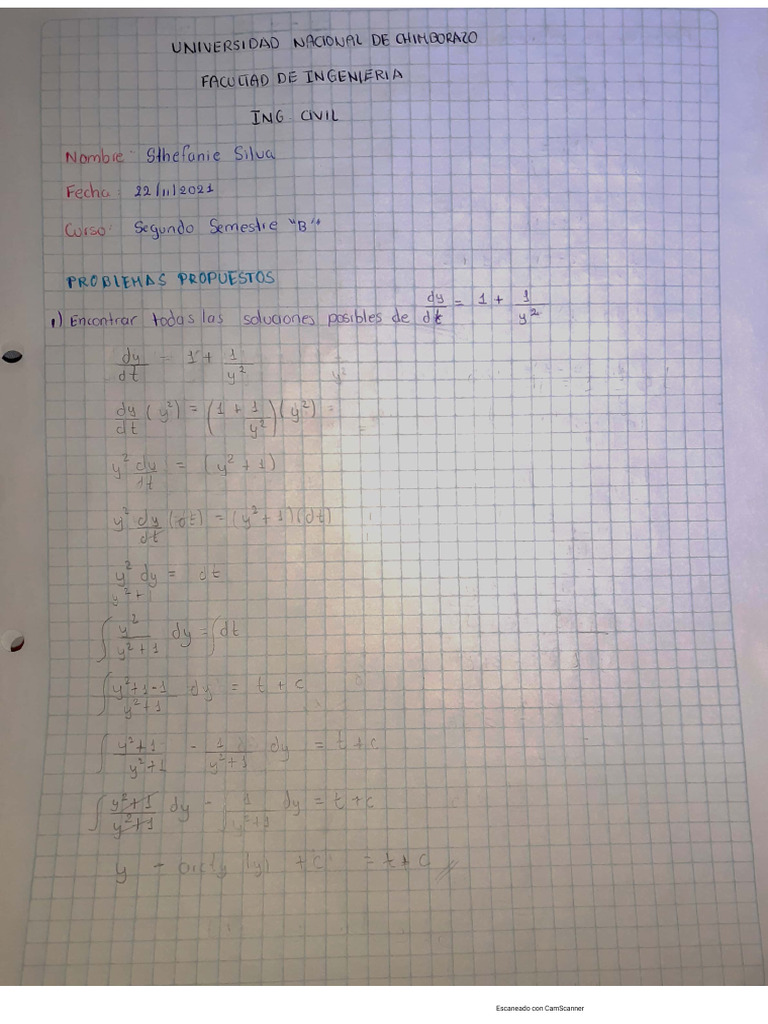 UNIVERSIDAD NACIONAL DE CHIMBORAZO
FACULTAD DE INGENIERIA
ING. CIVIL
Nombre: Sthefanie Silva
Fecha: 22/11/2021
Curso: Segundo Semestre "B"
PROBLEMAS PROPUESTOS
1) Encontrar todas las soluciones posibles de dy/dt = 1 + 1/y²
dy/dt = 1 + 1/y²
dy/dt (y²) = (1 + 1/y²)(y²) =
y² dy/dt = (y² + 1)
y² dy/dt (dt) = (y² + 1)(dt)
y²/y²+ dy = dt
∫ y²/y²+1 dy = ∫ dt
∫ y²+1-1/y²+1 dy = t + c
∫ y²+1/y²+1 - 1/y²+1 dy = t + c
∫ y²+1/y²+1 dy - ∫ 1/y²+1 dy = t + c
y - (y) + c = t + c
Escaneado con CamScanner